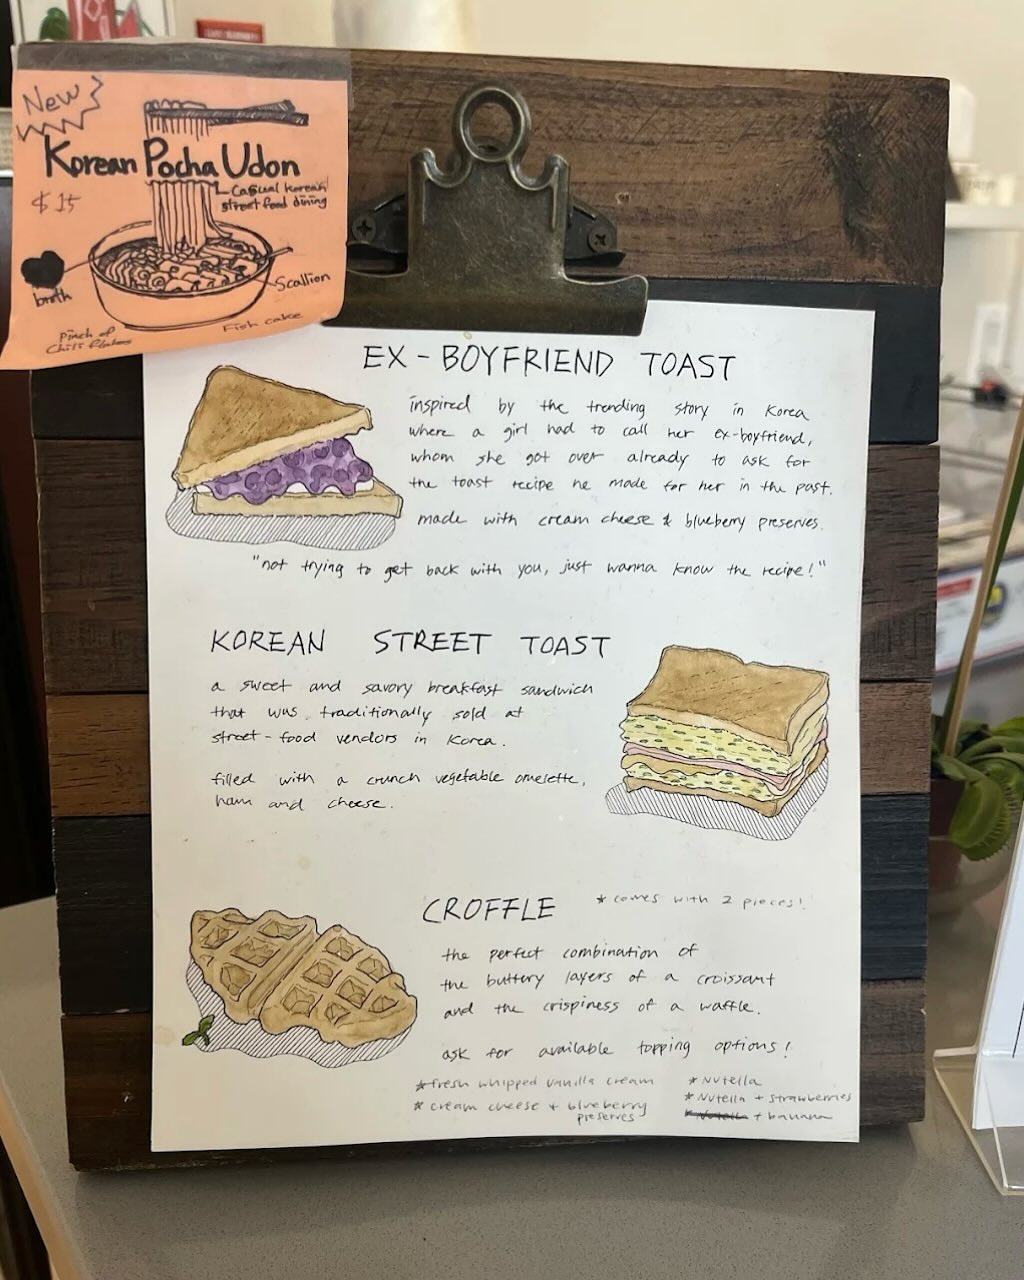 New
Korean Pocha Udon
$15
Casual korean
street food dining
broth
Scallion
Pinch of
Chili flakes
Fish cake
EX-BOYFRIEND TOAST
inspired by the trending story in Korea
where a girl had to call her ex-boyfriend,
whom she got over already to ask for
the toast recipe he made for her in the past.
made with cream cheese & blueberry preserves.
"not trying to get back with you, just wanna know the recipe!"
KOREAN STREET TOAST
a sweet and savory breakfast sandwich
that was traditionally sold at
street-food vendors in Korea.
filled with a crunch vegetable omelette,
ham and cheese.
CROFFLE
* comes with 2 pieces!
the perfect combination of
the buttery layers of a croissant
and the crispiness of a waffle.
ask for available topping options!
* fresh whipped vanilla cream
* cream cheese + blueberry
preserves
* Nutella
* Nutella + strawberries
* Nutella + banana